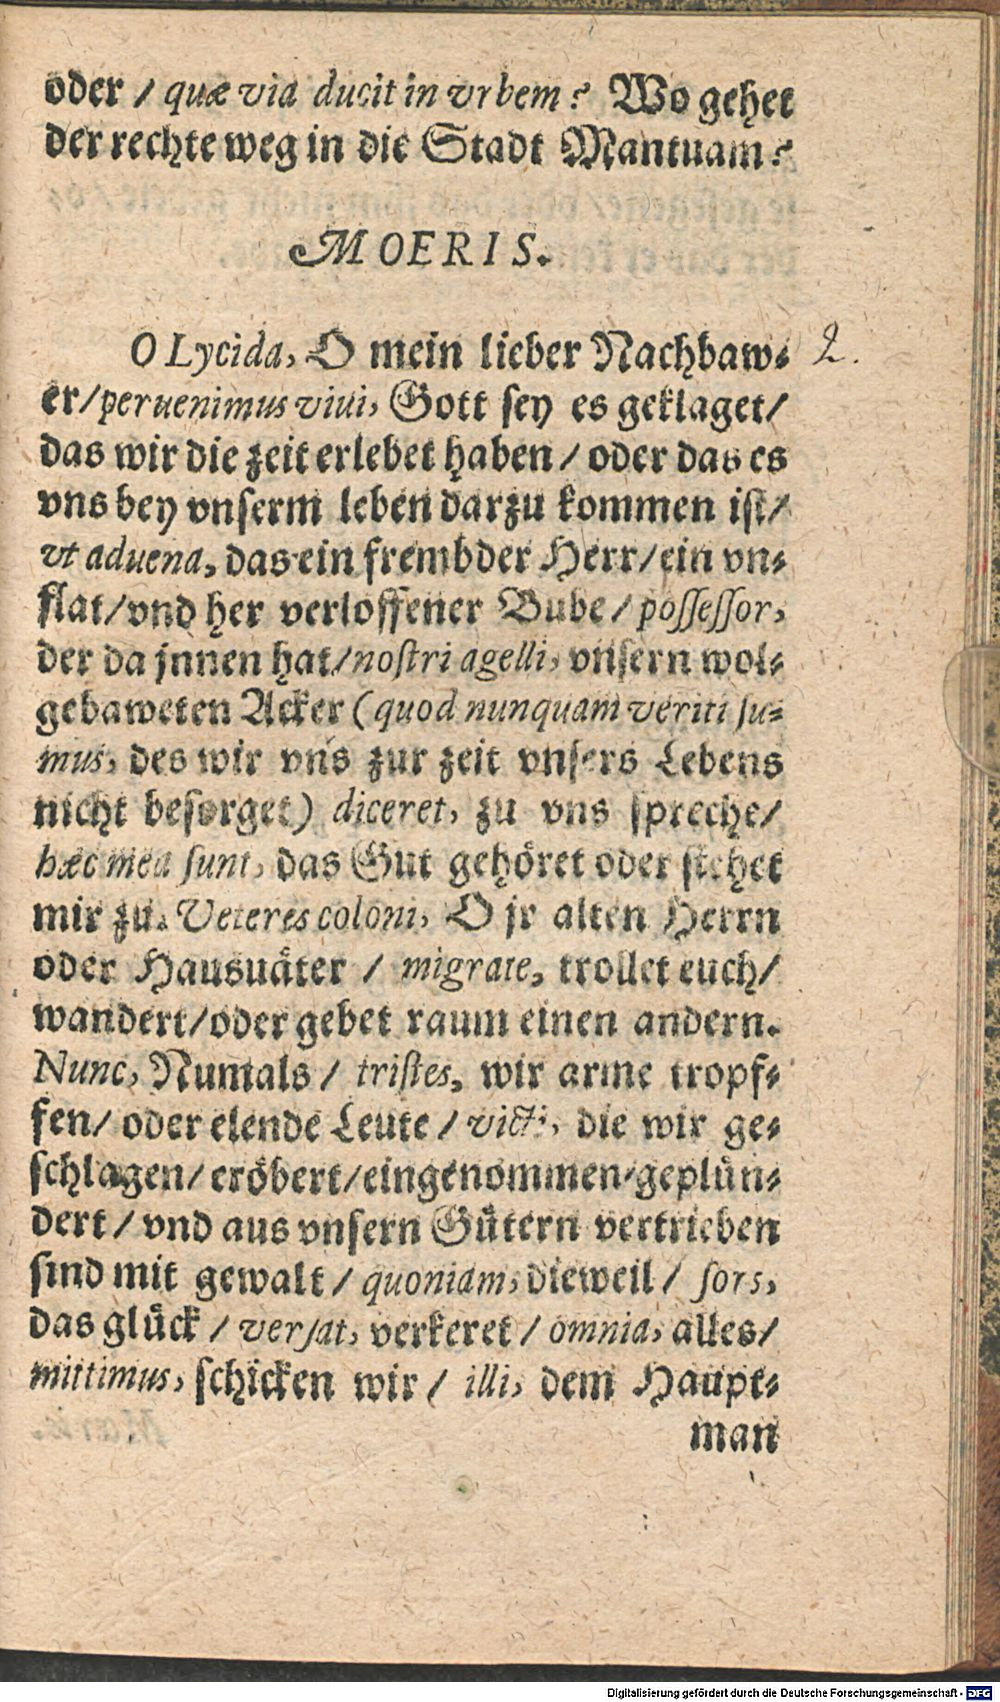 oder / quæ via ducit in vrbem? Wo gehet
der rechte weg in die Stadt Mantuam?
MOERIS.
O Lycida, O mein lieber Nachbaw- 2.
er/peruenimus viui, Gott sey es geklaget/
das wir die zeit erlebet haben / oder das es
vns bey vnserm leben darzu kommen ist/
vt aduena, das ein frembder Herr/ein vn-
flat/vnd her verloffener Bube / possessor,
der da jnnen hat/nostri agelli, vnsern wol-
gebaweten Acker (quod nunquam veriti su-
mus, des wir vns zur zeit vnsers Lebens
nicht besorget) diceret, zu vns spreche/
hæc mea sunt, das Gut gehöret oder stehet
mir zu. Veteres coloni, O jr alten Herrn
oder Hausuäter / migrate, trollet euch/
wandert/oder gebet raum einen andern.
Nunc, Numals / tristes, wir arme tropf-
fen/ oder elende Leute / victi, die wir ge-
schlagen/ eröbert/eingenommen/geplün-
dert / vnd aus vnsern Gütern vertrieben
sind mit gewalt / quoniam, dieweil / sors,
das glück / versat, verkeret / omnia, alles/
mittimus, schicken wir / illi, dem Haupt-
man
Digitalisierung gefördert durch die Deutsche Forschungsgemeinschaft - DFG